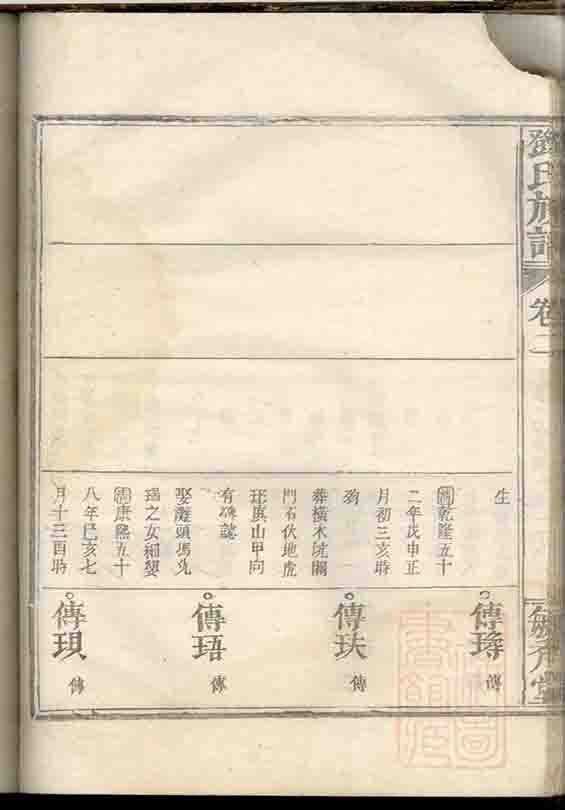 鄧氏族譜
卷二
生
清乾隆五十
二年戊申正
月初三亥時
歿
葬橫木坑關
門石伏地虎
形庚山甲向
有碑誌
娶灘頭馮
瑤之女細嬰
清康熙五十
八年己亥七
月十三酉時
傳
傳玞
傳
傳珸
傳
傳珼
傳